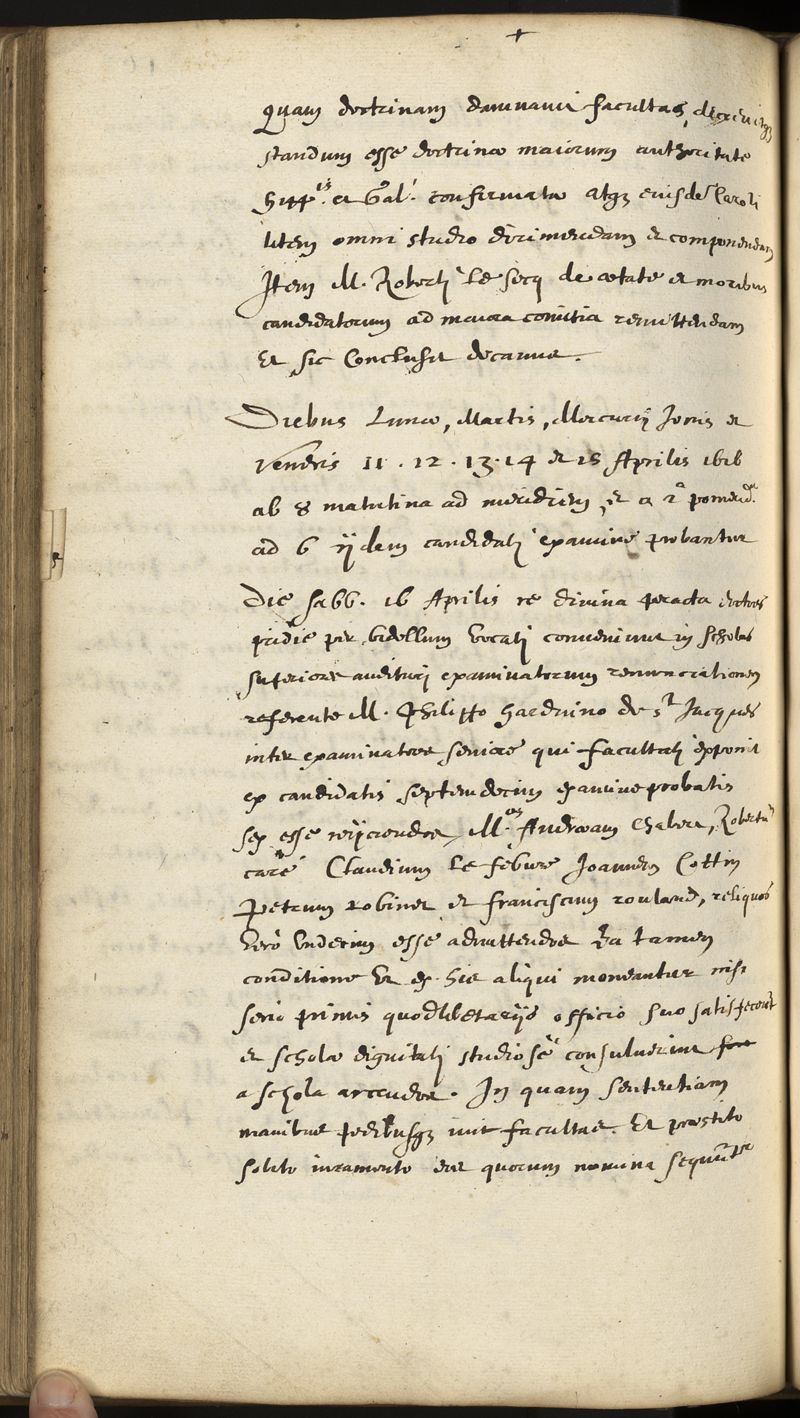 +
quam doctrinam damnavit facultas, decrevitqz
standum esse doctrinæ maiorum authoritate
Hipp.is et Gal. confirmatæ atqz eiusdē Caroli
litem omni studio dirimendam et componendam
Item M. Roberti Le Secq de ætate et moribus
candidatorum ad maiora comitia remittendam
Et sic Conclusit decanus.
Diebus Lunæ, Martis, Mercurij Jovis et
Veneris 11. 12. 13. 14 et 15 Aprilis 1616
ab 8 matutina ad meridiem, et a 2a pomerid.
ad 6 ijdem candidati examine probantur
Die Sabb. 16 Aprilis re divina peracta doctores
pridie per bidellum vocati conveniunt in scholas
superiores audituri examinatorum renunciationem
referente M. Philippo Harduino de St Jacques
inter examinatores seniore qui facultati exponit
ex candidatis septemdecim examine probatis
sex esse reijciendos, M.os Andræam Chabere, Robertū
carré Claudium Le febure Joannem Cottin
Petrum robinet et franciscum rouland, reliquos
vero undecim esse admittendos Ea tamen
conditione ut ex his aliqui moneantur nisi
serio primis quodlibetarijs officio suo satisfecerint
et scholæ dignitati studiosè consuluerint
a schola arcendos. In quam sententiam
manibus pedibusqz ivit facultas. Et præstito
solito iuramento quorum nomina sequūtur